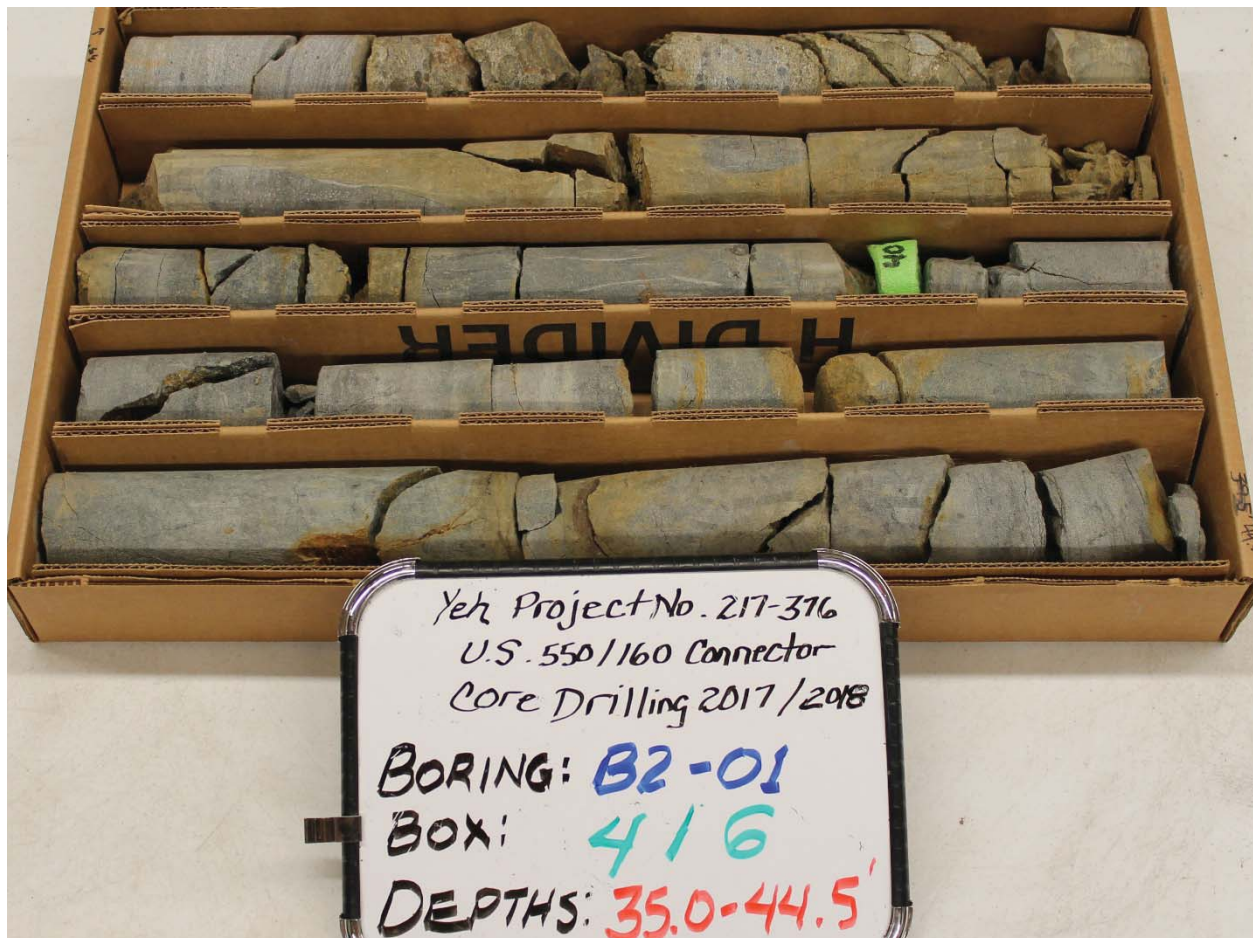 40
H DIVIDER
Yeh Project No. 217-376
U.S. 550/160 Connector
Core Drilling 2017/2018
BORING: B2-01
BOX: 4/6
DEPTHS: 35.0-44.5'